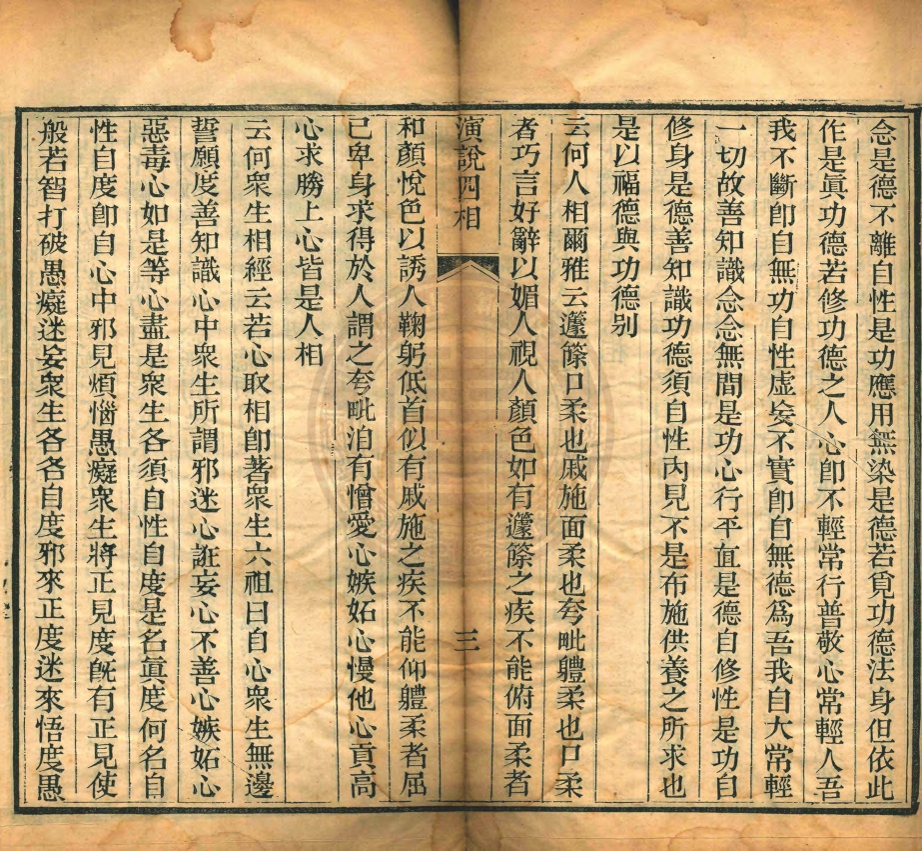 念是德不離自性是功應用無染是德若覓功德法身但依此
作是眞功德若修功德之人心卽不輕常行普敬心常輕人吾
我不斷卽自無功自性虛妄不實卽自無德爲吾我自大常輕
一切故善知識念念無間是功心行平直是德自修性是功自
修身是德善知識功德須自性內見不是布施供養之所求也
是以福德與功德别
云何人相爾雅云籧篨口柔也戚施面柔也夸毗軆柔也口柔
者巧言好辭以媚人視人顏色如有籧篨之疾不能俯面柔者
演說四相
三
和顏悅色以誘人鞠躬低首似有戚施之疾不能仰軆柔者屈
己卑身求得於人謂之夸毗洎有憎愛心嫉妬心慢他心貢高
心求勝上心皆是人相
云何衆生相經云若心取相卽著衆生六祖曰自心衆生無邊
誓願度善知識心中衆生所謂邪迷心誑妄心不善心嫉妬心
惡毒心如是等心盡是衆生各須自性自度是名眞度何名自
性自度卽自心中邪見煩惱愚癡衆生將正見度旣有正見使
般若智打破愚癡迷妄衆生各各自度邪來正度迷來悟度愚